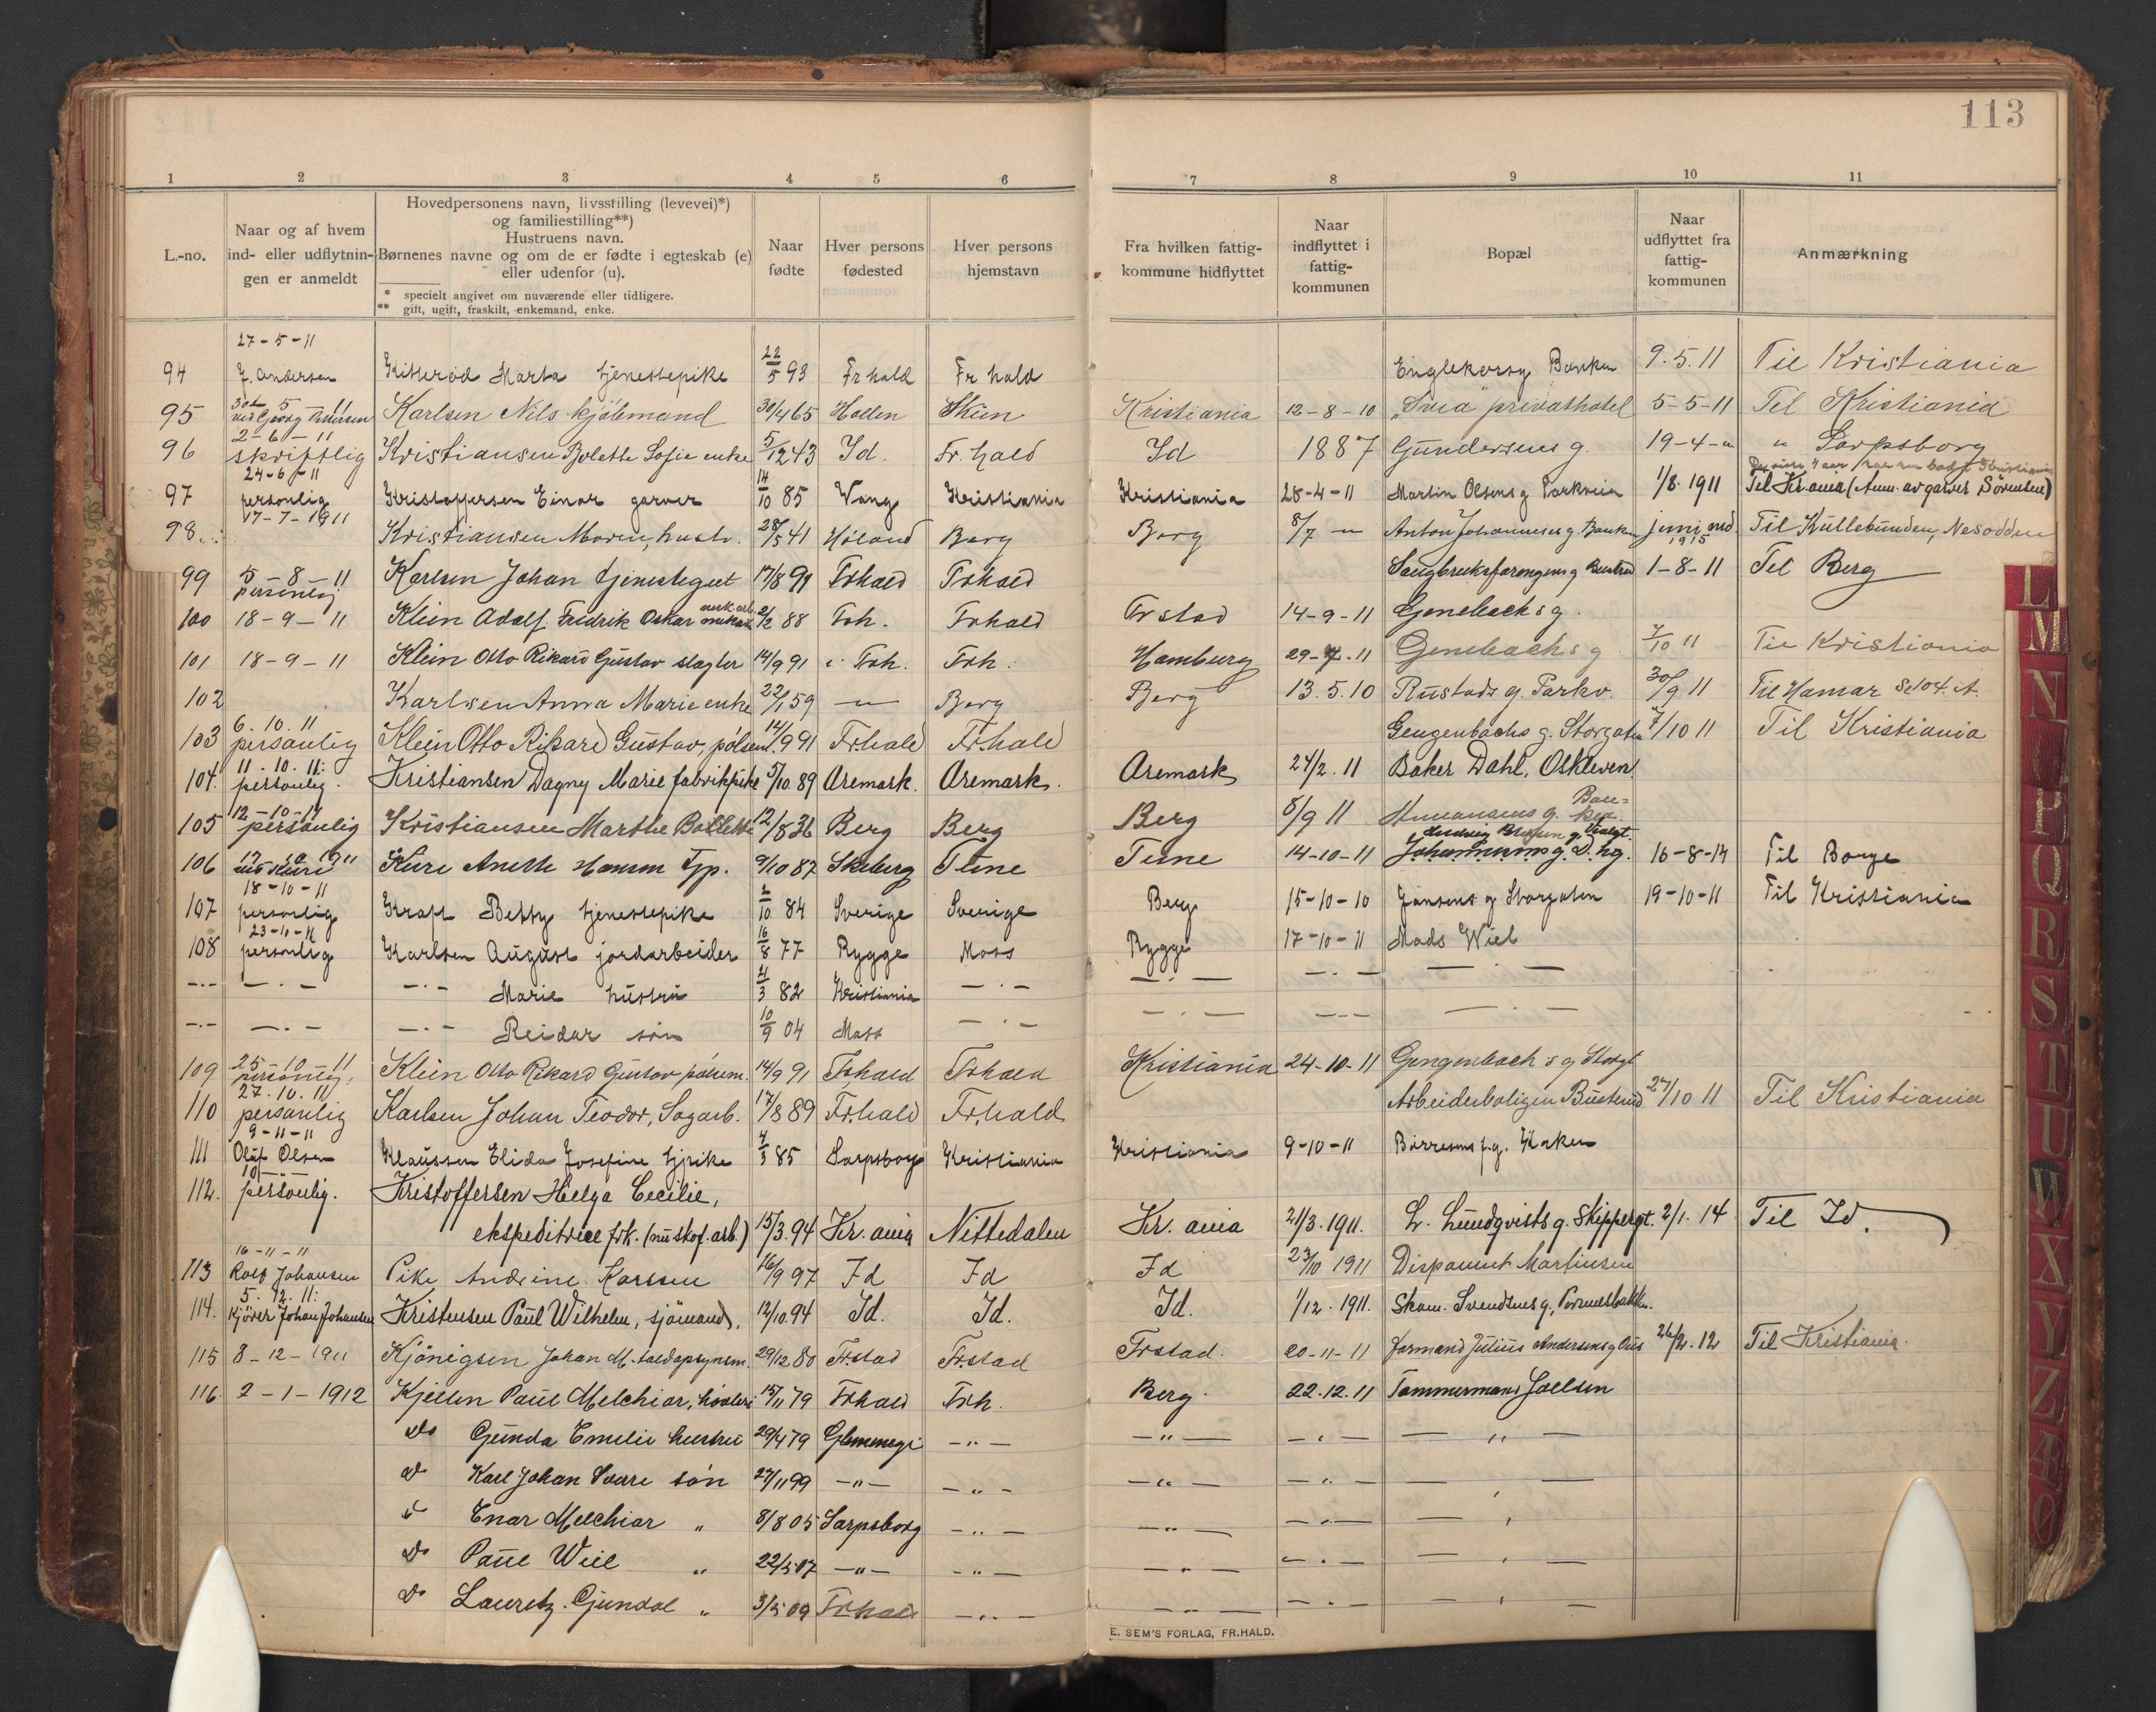 113
1 2 3 4 5 6 7 8 9 10 11
L.-no.
Naar og af hvem ind- eller udflytnin- gen er anmeldt
Hovedpersonens navn, livsstilling (levevei)*)
og familiestilling**)
Hustruens navn.
Børnenes navne og om de er fødte i egteskab (e)
eller udenfor (u).
* specielt angivet om nuværende eller tidligere.
** gift, ugift, fraskilt, enkemand, enke.
Naar fødte
Hver persons fødested
Hver persons hjemstavn
Fra hvilken fattig- kommune hidflyttet
Naar indflyttet i fattig- kommunen
Bopæl
Naar udflyttet fra fattig- kommunen
Anmærkning
27-5-11
94 J. Andersen Kitterød Marta tjenestepike 22/5 93 Frhald Fr hald Banken 9.5.11 Til Kristiania
95 Karlsen Nils kjøbmand 30/4 65 Hallen Kristiania 12-8-10 "Svea" privathotel 5-5-11 Til Kristiania
2-6-11
96 skriftlig Kristiansen Bolette Sofie enke 5/12 43 Id. Fr. hald Id 1887 Gundersens g. 19-4-" " Sarpsborg
24-6-11
97 personlig Kristoffersen Einar garver 14/10 85 Vang Kristiania Kristiania 28-4-11 Martin Olsens g Parkveien 1/8. 1911 Til Kr.ania (Anm. av garver Sörensen)
17-7-1911
98. Kristiansen Maren, hustr. 28/5 41 Høland Berg Berg 8/7 " Anton Johannesens g. Banken juni 1915 Til Nesodden
99 5-8-11 personlig Karlsen Johan tjenestegut 17/8 91 Frhald Frhald 1-8-11 Til Berg
100 18-9-11 Klein Adolf Fredrik Oskar 2/2 88 Frh. Frhald Frstad 14-9-11 Genebachs g.
101 18-9-11 Klein Otto Rikard Gustav slagter 14/9 91 Frh. Frh. Hamburg 29-7-11 Genebachs g 7/10 11 Til Kristiania
102 Karlsen Anna Marie enke 22/1 59 " Berg Berg 13.5.10 Rustads g. Parkv. 30/9 11 Til Hamar
6.10.11
103 personlig Klein Otto Rikard Gustav, pølsem. 14/9 91 Fr.hald Fr.hald Gengenbachs g. Storgaten 7/10 11 Til Kristiania
11.10.11.
104. personlig. Kristiansen Dagny Marie fabrikpike 5/10.89 Aremark. Aremark. Aremark 24/2.11 Baker Dahl, Oskleven
12-10-11
105 personlig Kristiansen Marthe Bollette 12/8 36 Berg Berg Berg 8/9 11
106 Kure Anette Hansen Tjp. 9/10 87 Skeberg Tune Tune 14-10-11 Johannesens g. 16-8-14 Til Borge
18-10-11
107 personlig Kraft Betty tjenestepike 2/10 84 Sverige Sverige Berg 15-10-10 Jansens g Storgaten 19-10-11 Til Kristiania
23-10-11
108 personlig Karlsen August jordarbeider 16/8 77 Rygge Moss Rygge 17-10-11 Mads Wiel
—.— —.— —.— Marie hustru 4/3 82 Kristiania —.— —.— —.— — . —
—.— —.— —.— Reidar søn 10/9 04 Moss —.— —.— —.— — . —
109 25-10-11 personlig. Klein Otto Rikard Gustav pølsem. 14/9 91 Frhald Frhald Kristiania 24-10-11 Gengenbach's g Storgt
27.10.11
110 personlig Karlsen Johan Teodor, Sagarb. 17/8 89 Fr.hald Fr.hald Arbeiderboligen Busterud 27/10 11 Til Kristiania
9-11-11
111 Oluf Olsen Klaussen Elida Josefine tjpike 4/3 85 Sarpsborg Kristiania Kristiania 9-10-11
112. personlig. Kristoffersen Helga Cecilie,
ekspeditrice frk. (nu skof. arb.) 15/3.94 Kr.ania Nittedalen Kr.ania 21/3.1911. L. Lundqvists g. Skippergt. 2/1.14 Til Id.
16-11-11
113 Rolf Johansen Pike Andrine Karlsen 16/9 97 Id Id Id 23/10 1911 Disponent Martinsen
5.12.11.
114. Kjörer Johan Johansen Kristensen Paul Wilhelm, sjömand, 12/10.94 Id. Id. Id. 1/12.1911. Skom. Svendsens g.,
115 8-12-1911 Kjönigsen Johan M. toldopsynsm. 29/12 80 Fr.stad Fr.stad Frstad. 20-11-11 Formand Julius Andersens g 26/2.12 Til Kristiania.
116. 2-1-1912 Kjellen Paul Melchiar, 15/11 79 Frhald Frh. Berg. 22.12.11 Tømmermand Joelsen
Do Gunda Emelie hustru 29/4 79 Glemminge —"— —"— —"— — " —
Do Karl Johan Sverre søn 27/11 99 —"— —"— —"— —"— — " —
Do Enar Melchiar " 8/8 05 Sarpsborg —"— —"— —"— — " —
Do Paul Wiel " 22/5 07 —"— —"— —"— —"— — " —
Do Lauretz Gundal " 3/5 09 Frhald —"— —"— —"— — " —
E. SEM'S FORLAG, FR.HALD.
L
M
N
O
P
Q
R
S
T
U
W
X
Y
Z
Æ
Ø